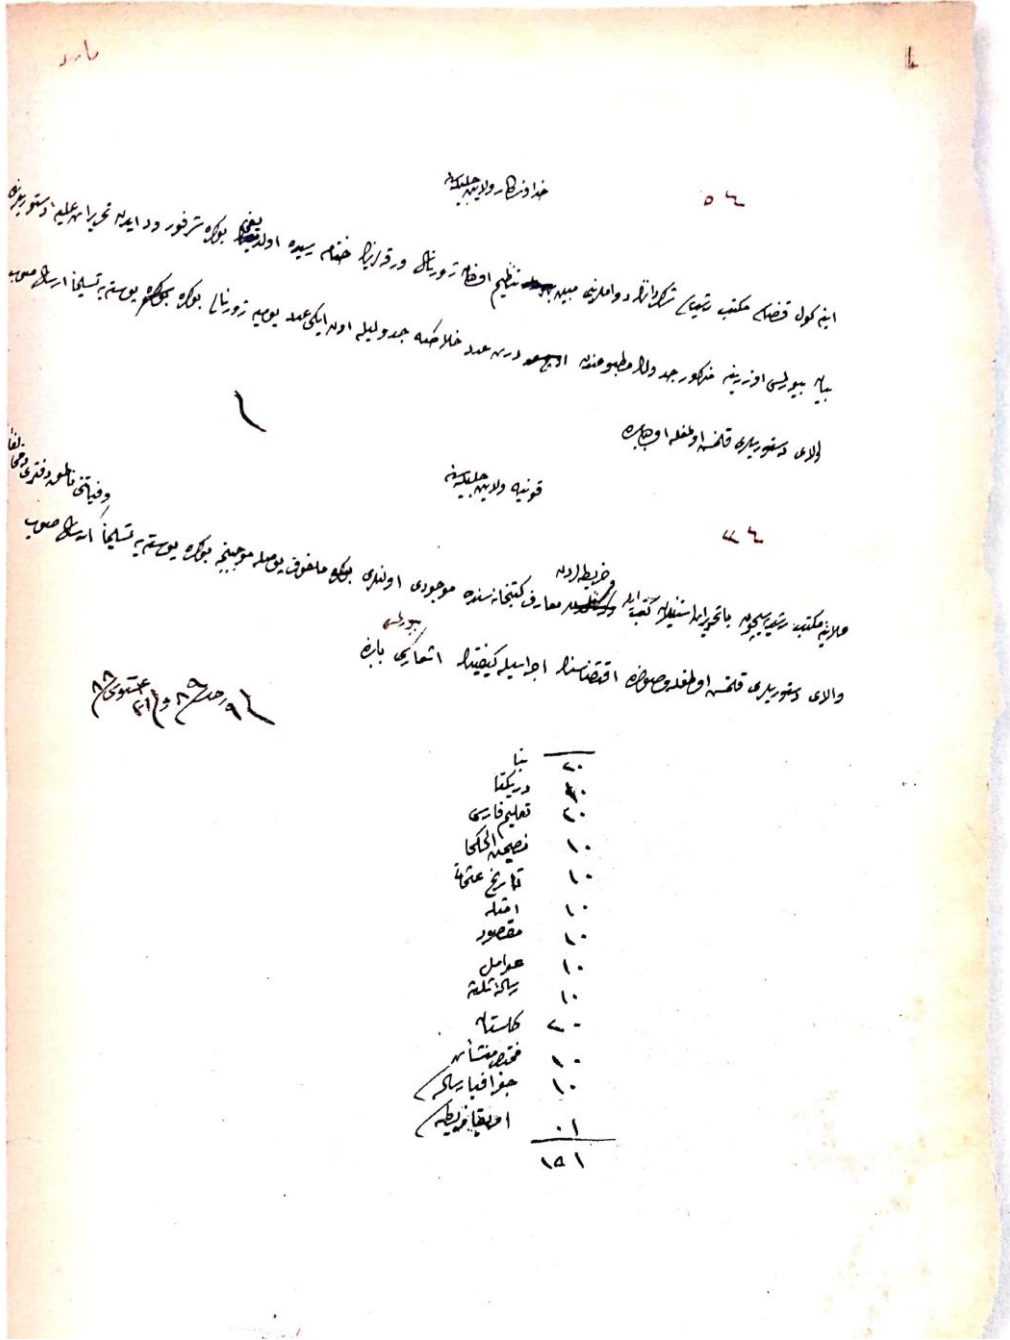 خداوندكار ولايت جليله سنه
اينه كول قضاسى مكتب رشديسى شاكرداننك دواملرينى مبين تنظيم اولنان ژورنال ورقه لرينك ختام رسيده اولديغى بوكره شرفورود ايدن تحريرات عليۀ دستوريلرنده
بيان بيورلمسى اوزرينه مذكور جدولك مطبوعندن درت عدد خلاصه جدوليله اون ايكى عدد يوميه ژورنالى بوكره پوسته يه تسليماً ارسال صوب
والاى دستوريلرى قلنمش اولمغله اولبابده
قونيه ولايت جليله سنه
وفيأتنى ناطق دفترى دخى لفاً
خريطه لردن
علائيه مكتب رشديسيچون باتحريرات استنيلان كتب ايله معارف كتبخانه سنده موجودى اولنلرى ملفوف پوصله موجبنجه بوكره پوسته يه تسليماً ارسال صوب
بيورلمسى
والاى دستوريلرى قلنمش اولمغله وصولنده اقتضاسنك اجراسيله كيفيتنك اشعارى بابنده
٢٠ بنا
دريكتا
٢٠ تعليم فارسى
١٠ نصيحة الحكما
١٠ تاريخ عثمانى
١٠ امثله
١٠ مقصود
١٠ عوامل
١٠ رساله ثلثه
٢٠ كلستان
١٠ مختصر منشأت
١٠ جغرافيا رساله سى
٠١ افريقا خريطه سى
١٥١